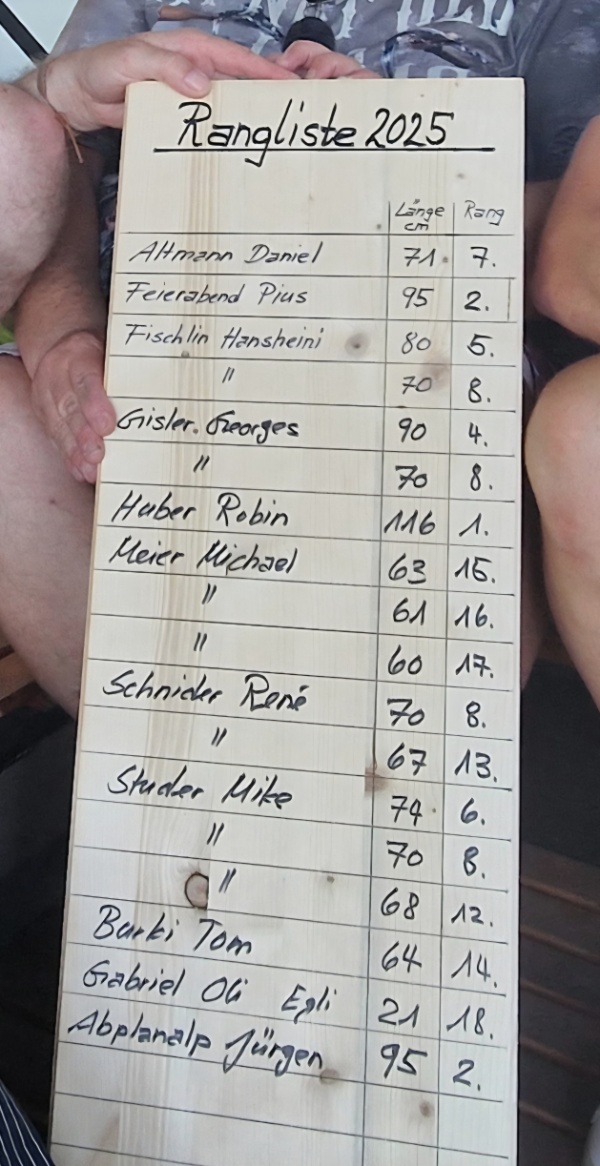 Rangliste 2025
Länge cm Rang
Altmann Daniel 71. 7.
Feierabend Pius 95 2.
Fischlin Hansheini 80 5.
" 70 8.
Gisler. Georges 90 4.
" 70 8.
Huber Robin 116 1.
Meier Michael 63 15.
" 61 16.
" 60 17.
Schnider René 70 8.
" 67 13.
Studer Mike 74. 6.
" 70 8.
" 68 12.
Burki Tom 64 14.
Gabriel Oli Egli 21 18.
Abplanalp Jürgen 95 2.